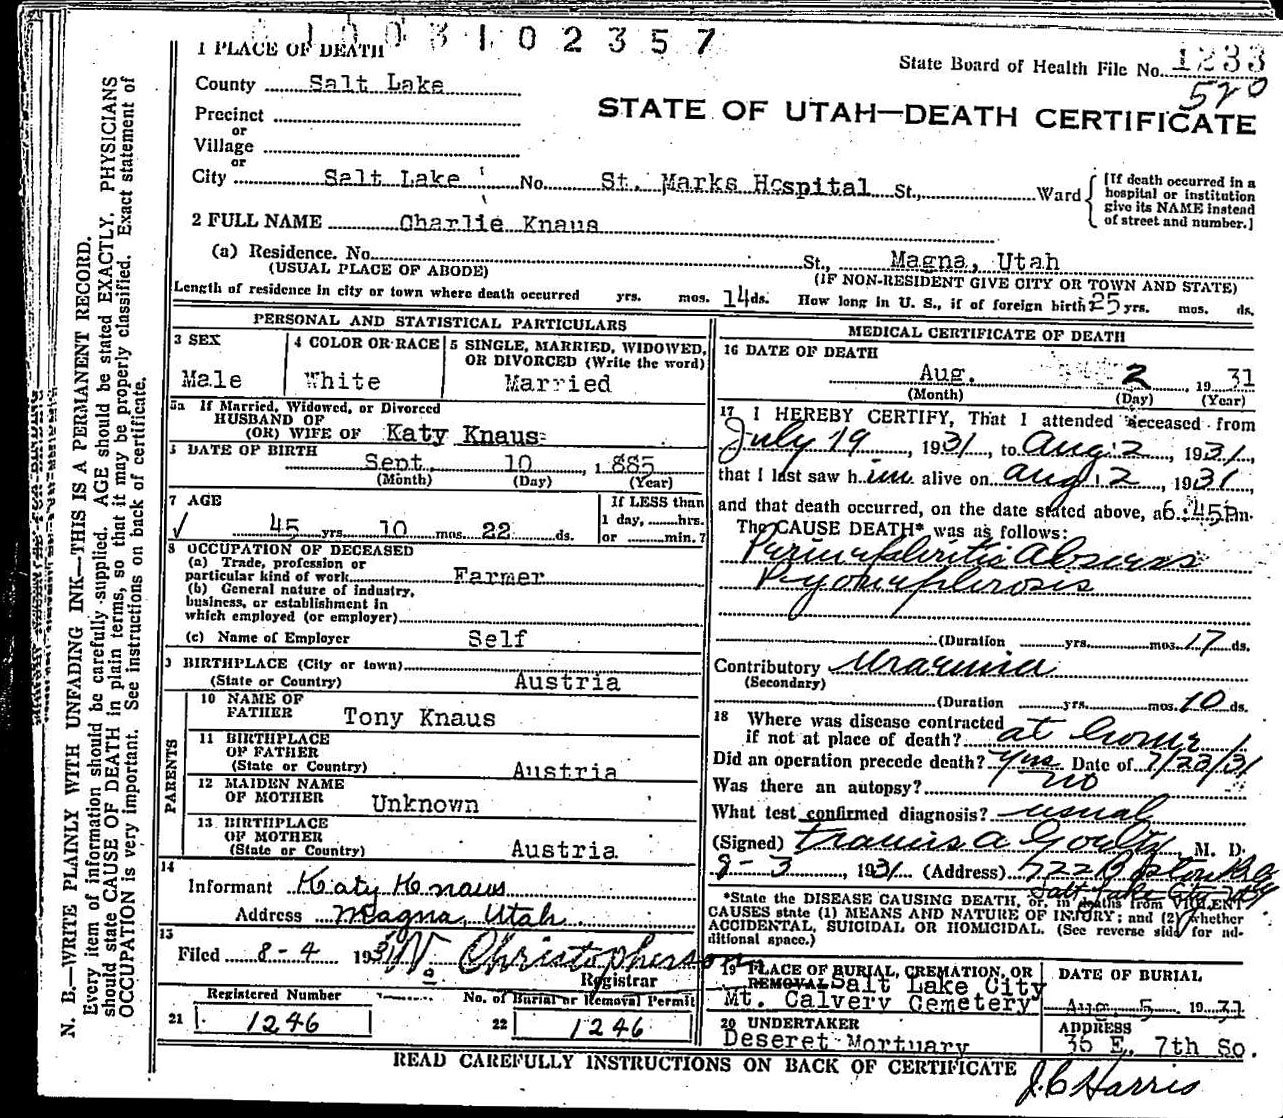 1003102357
1 PLACE OF DEATH
State Board of Health File No. 1233
520
County Salt Lake
STATE OF UTAH—DEATH CERTIFICATE
Precinct
or
Village
or
City Salt Lake No. St. Marks Hospital St., Ward
[If death occurred in a
hospital or institution
give its NAME instead
of street and number.]
2 FULL NAME Charlie Knaus
(a) Residence. No. St., Magna, Utah
(USUAL PLACE OF ABODE) (IF NON-RESIDENT GIVE CITY OR TOWN AND STATE)
Length of residence in city or town where death occurred yrs. mos. 14 ds. How long in U. S., if of foreign birth 25 yrs. mos. ds.
PERSONAL AND STATISTICAL PARTICULARS
3 SEX
Male
4 COLOR OR RACE
White
5 SINGLE, MARRIED, WIDOWED,
OR DIVORCED (Write the word)
Married
5a If Married, Widowed, or Divorced
HUSBAND OF
(OR) WIFE OF Katy Knaus
DATE OF BIRTH
Sept 10, 1885
(Month) (Day) (Year)
7 AGE
45 yrs. 10 mos. 22 ds.
If LESS than
1 day, hrs.
or min.?
8 OCCUPATION OF DECEASED
(a) Trade, profession or
particular kind of work Farmer
(b) General nature of industry,
business, or establishment in
which employed (or employer)
(c) Name of Employer Self
9 BIRTHPLACE (City or town)
(State or Country) Austria
PARENTS
10 NAME OF
FATHER Tony Knaus
11 BIRTHPLACE
OF FATHER
(State or Country) Austria
12 MAIDEN NAME
OF MOTHER Unknown
13 BIRTHPLACE
OF MOTHER
(State or Country) Austria
14
Informant Katy Knaus
Address Magna, Utah
15
Filed 8-4 1931 W. Christopherson
Registrar
Registered Number
21 1246
No. of Burial or Removal Permit
22 1246
MEDICAL CERTIFICATE OF DEATH
16 DATE OF DEATH
Aug. 2, 1931
(Month) (Day) (Year)
17 I HEREBY CERTIFY, That I attended deceased from
July 19, 1931, to Aug. 2, 1931,
that I last saw him alive on Aug. 2, 1931,
and that death occurred, on the date stated above, a 6:45 Pm.
The CAUSE DEATH* was as follows:
Perinephritic Abscess
Pyonephrosis
(Duration yrs. mos. 17 ds.
Contributory Uraemia
(Secondary)
(Duration yrs. mos. 10 ds.
18 Where was disease contracted
if not at place of death? at home
Did an operation precede death? Yes Date of 7/23/31
Was there an autopsy? no
What test confirmed diagnosis? usual
(Signed) Francis A Goeltz, M. D.
8-3, 1931 (Address) 722 Boston Bldg
Salt Lake City Utah
*State the DISEASE CAUSING DEATH, or, in deaths from VIOLENT
CAUSES state (1) MEANS AND NATURE OF INJURY; and (2) whether
ACCIDENTAL, SUICIDAL OR HOMICIDAL. (See reverse side for ad-
ditional space.)
19 PLACE OF BURIAL, CREMATION, OR
REMOVAL Salt Lake City
Mt. Calvery Cemetery
DATE OF BURIAL
Aug. 5 1931
20 UNDERTAKER
Deseret Mortuary
ADDRESS
36 E. 7th So.
READ CAREFULLY INSTRUCTIONS ON BACK OF CERTIFICATE
J. C Harris
N. B.—WRITE PLAINLY WITH UNFADING INK—THIS IS A PERMANENT RECORD.
Every item of information should be carefully supplied. AGE should be stated EXACTLY. PHYSICIANS
should state CAUSE OF DEATH in plain terms, so that it may be properly classified. Exact statement of
OCCUPATION is very important. See instructions on back of certificate.